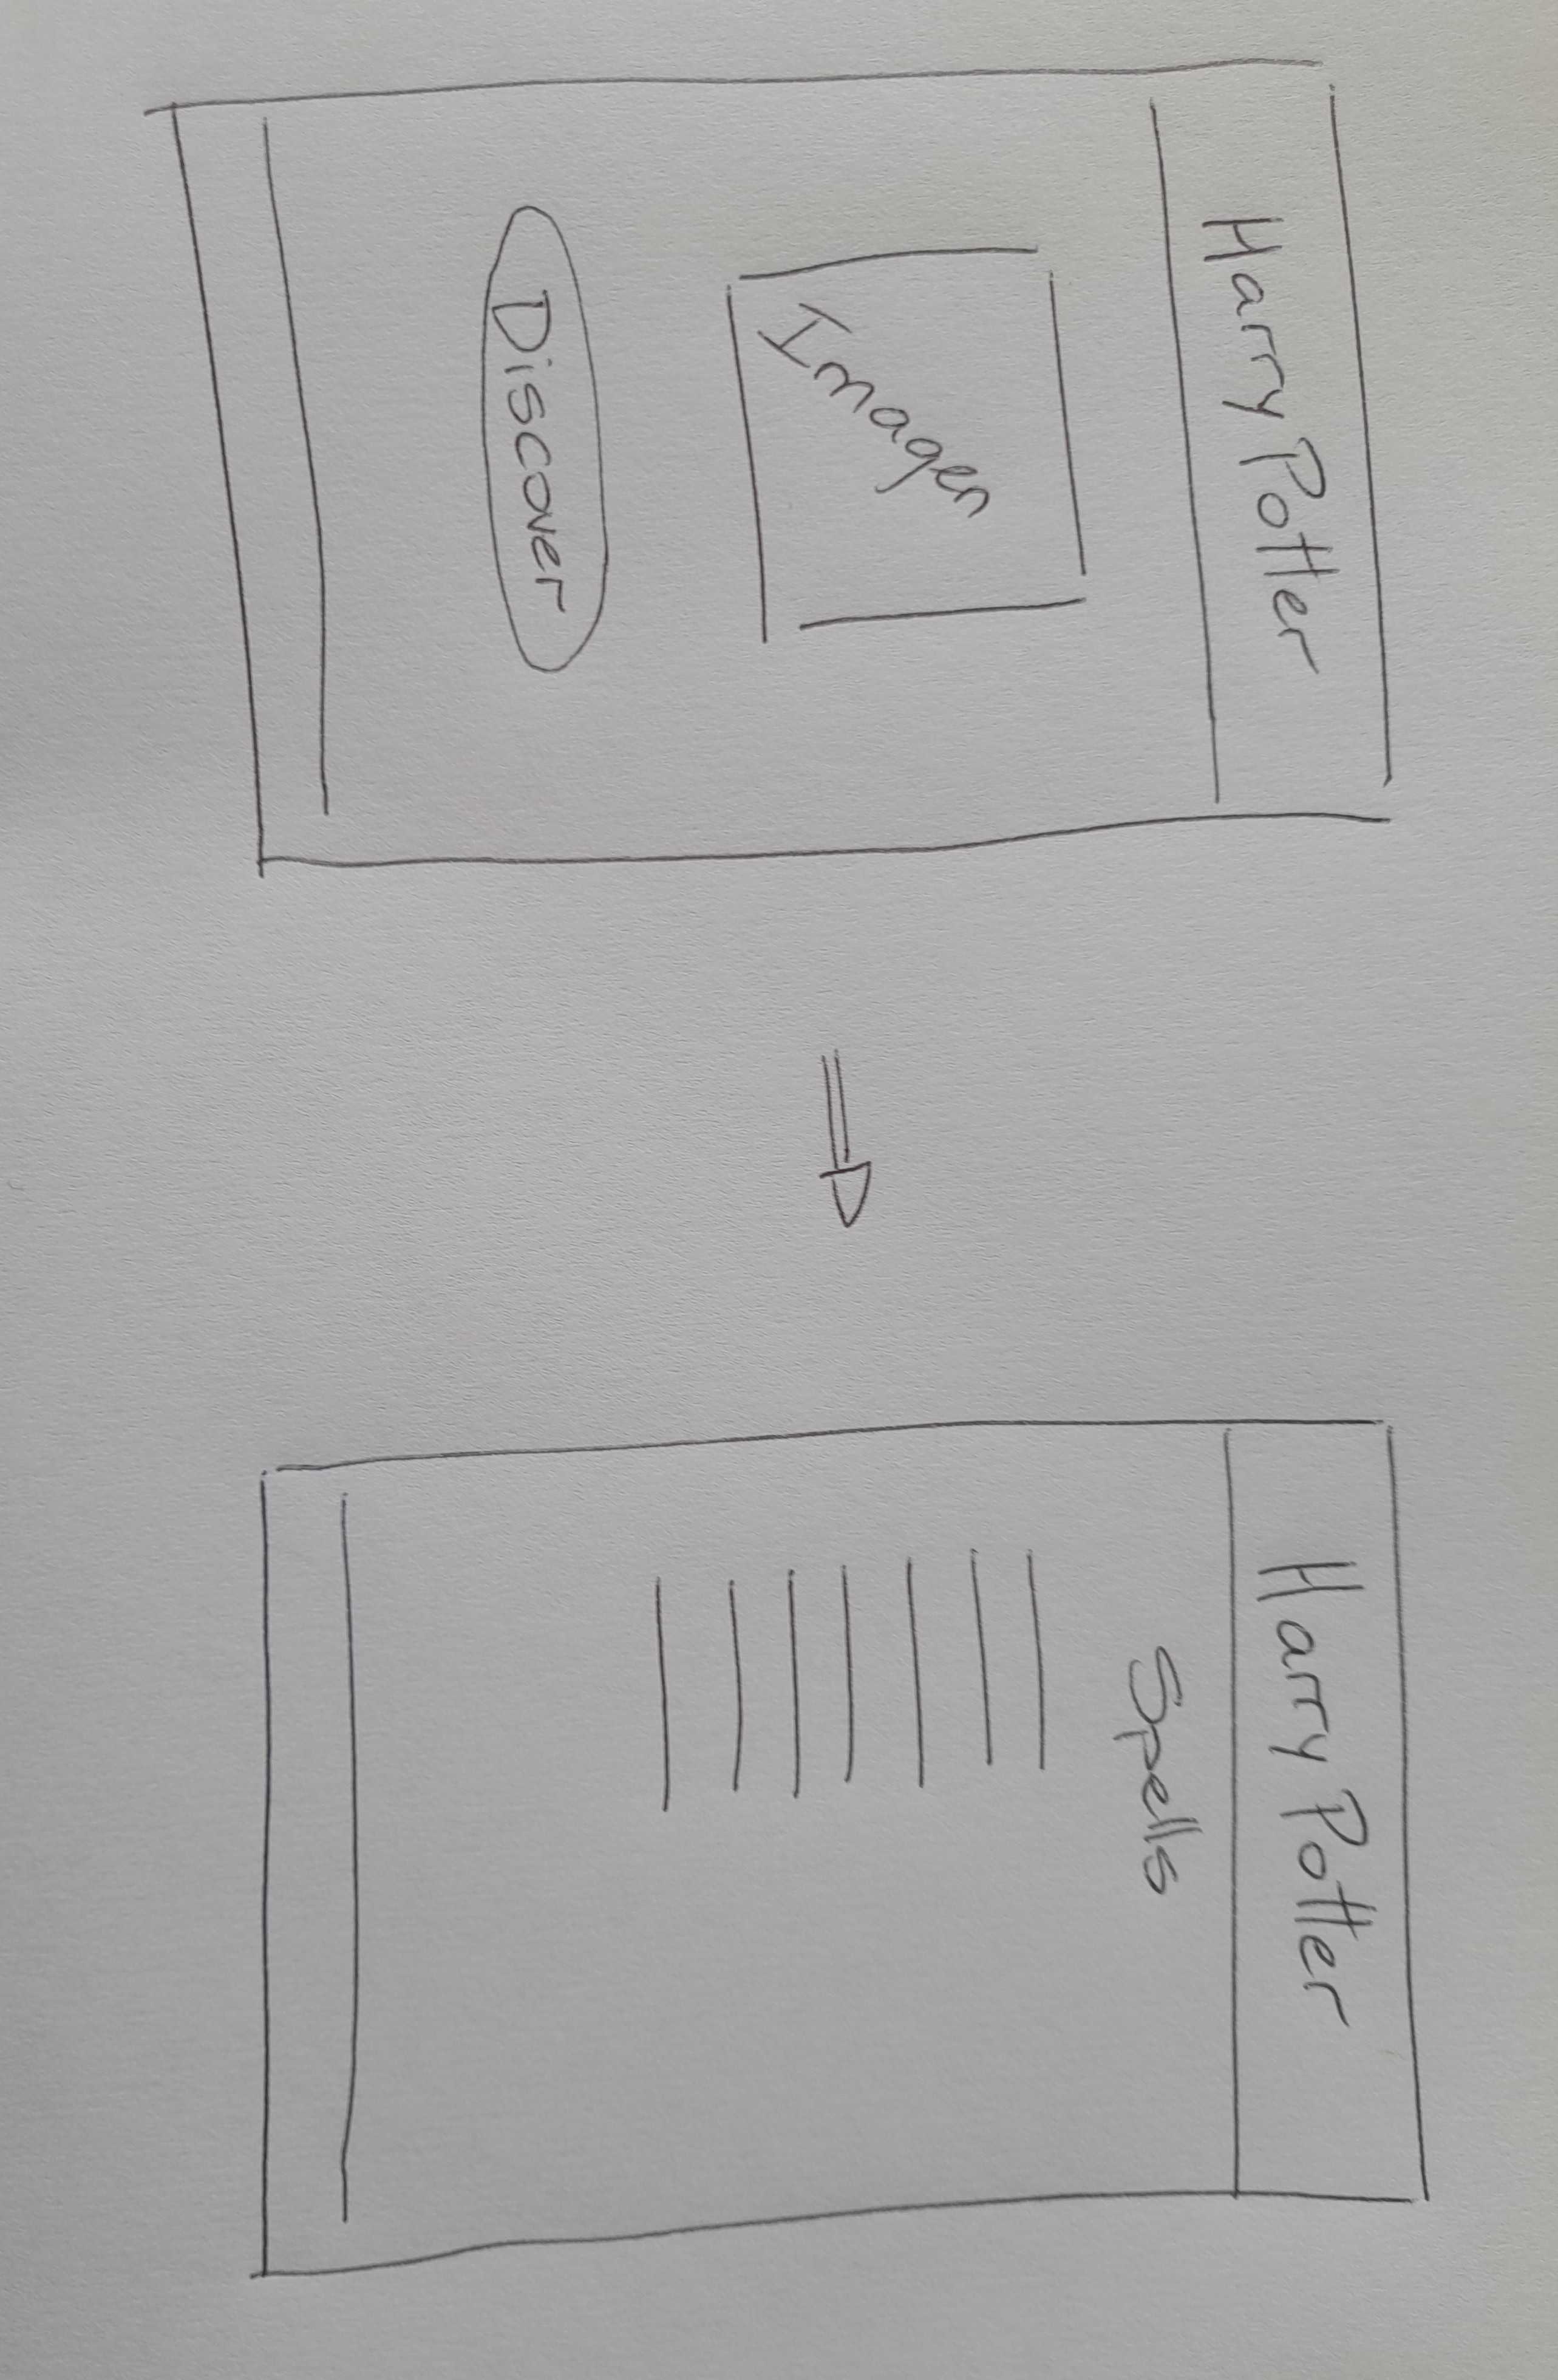 Harry Potter
Imagen
Discover
Harry Potter
Spells